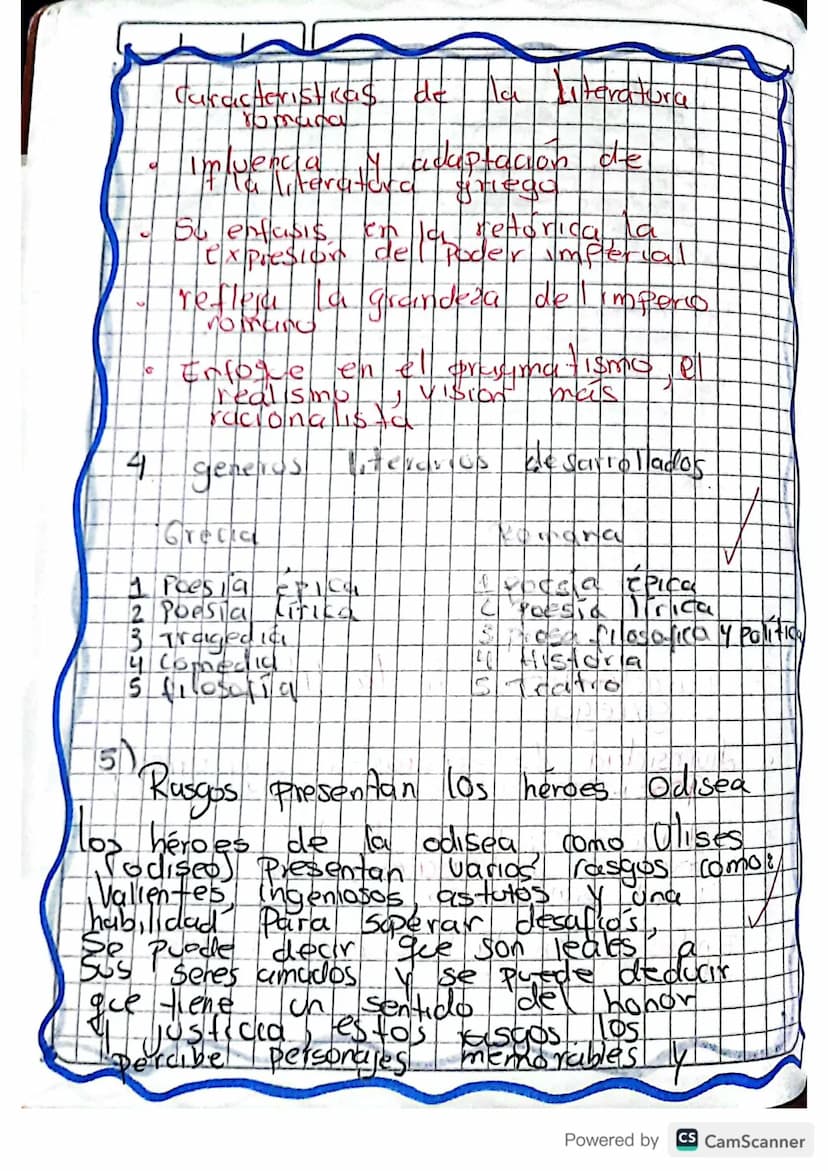 Caracteristicas de la Literatura
romana
• imluencia y adaptación de
la literatura griego
• Su enfasis en la retórica la
expresión del Poder imperial
• refleja la grandeza del imperio
romano
• Enfoque en el pragmatismo, el
realismo, visión más
racionalista
4 generos literarios desarrollados
Grecia Romana
1 Poesia épica 1 Poesia épica
2 Poesia lírica 2 Poesía lírica
3 Tragedia 3 Prosa filosofica y política
4 Comedia 4 Historia
5 filosofía 5 Teatro
5)
Rasgos presentan los héroes Odisea
los héroes de la odisea como Ulises
(odiseo) Presentan varios rasgos como:
Valientes, ingeniosos, astutos y una
habilidad Para superar desafíos,
Se puede decir que son leales a
Sus seres amados y se puede deducir
que tiene un sentido del honor
y justicia, estos rasgos los
percibe personajes memorables y
Powered by CS CamScanner